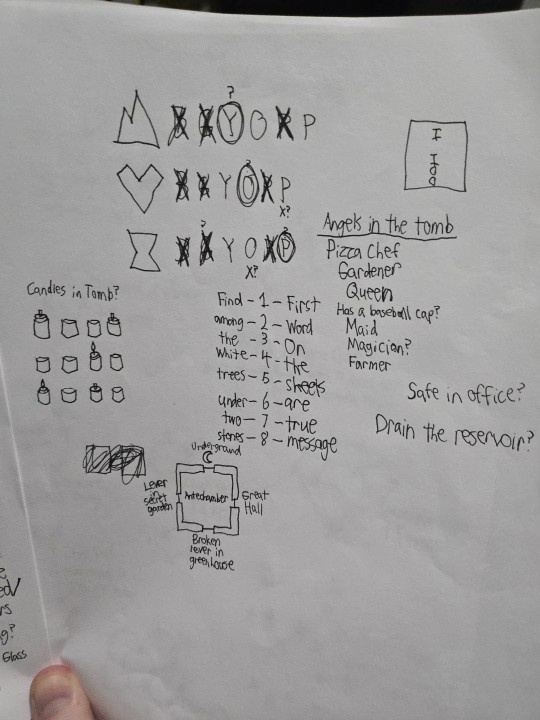 ?
Y O P
?
Y O P
X?
?
Y O P
X?
I
I
Angels in the tomb
Pizza Chef
Gardener
Queen
Has a baseball cap?
Maid
Magician?
Farmer
Candies in Tomb?
Find - 1 - First
among - 2 - Word
the - 3 - On
White - 4 - the
trees - 5 - sheets
under - 6 - are
two - 7 - true
stones - 8 - message
Safe in office?
Drain the reservoir?
Underground
Lever in secret garden
Antechamber
Great Hall
Broken lever in greenhouse
g?
Glass